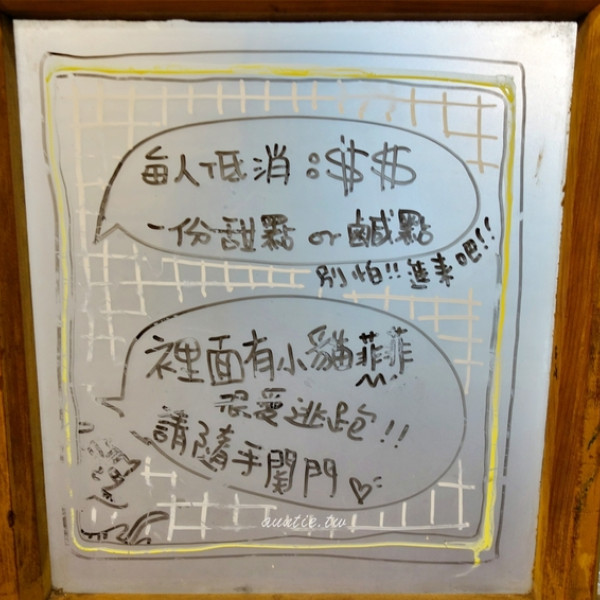 每人低消:$$
一份甜點 or 鹹點
別怕!! 進來吧!!
裡面有小貓菲菲
很愛逃跑!!
請隨手關門♡
auxtie.tw